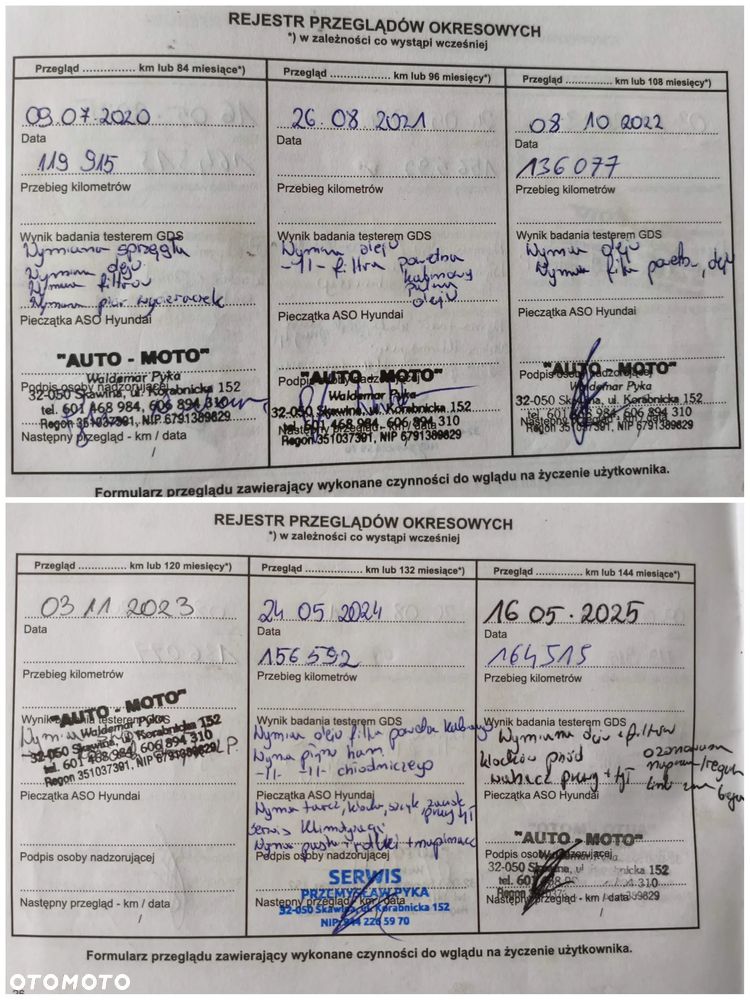 REJESTR PRZEGLĄDÓW OKRESOWYCH
*) w zależności co wystąpi wcześniej
Przegląd .............. km lub 84 miesiące*)
09.07.2020
Data
119 915
Przebieg kilometrów
Wynik badania testerem GDS
Wymiana sprzęgła
Wymiana oleju
Wymiana filtrów
Wymiana piór wycieraczek
Pieczątka ASO Hyundai
"AUTO - MOTO"
Waldemar Pyka
Podpis osoby nadzorującej
32-050 Skawina, ul. Korabnicka 152
tel. 601 468 984, 606 894 310
Regon 351037391, NIP 6791389829
Następny przegląd - km / data
/
Przegląd .............. km lub 96 miesięcy*)
26.08.2021
Data
Przebieg kilometrów
Wynik badania testerem GDS
Wymiana oleju
-11- filtra powietrza
kabinowy
paliwa
oleju
Pieczątka ASO Hyundai
"AUTO - MOTO"
Podpis osoby nadzorującej
Waldemar Pyka
32-050 Skawina, ul. Korabnicka 152
tel. 601 468 984, 606 894 310
Następny przegląd - km / data
Regon 351037391, NIP 6791389829
Przegląd .............. km lub 108 miesięcy*)
08 10 2022
Data
136077
Przebieg kilometrów
Wynik badania testerem GDS
Wymiana oleju
Wymiana filtra powietrza, oleju
Pieczątka ASO Hyundai
"AUTO - MOTO"
Podpis osoby nadzorującej
Waldemar Pyka
32-050 Skawina, ul. Korabnicka 152
tel. 601 468 984, 606 894 310
Regon 351037391, NIP 6791389829
Następny przegląd - km / data
/
Formularz przeglądu zawierający wykonane czynności do wglądu na życzenie użytkownika.
REJESTR PRZEGLĄDÓW OKRESOWYCH
*) w zależności co wystąpi wcześniej
Przegląd .............. km lub 120 miesięcy*)
03 11 2023
Data
Przebieg kilometrów
"AUTO - MOTO"
Wynik badania testerem GDS
Waldemar Pyka
32-050 Skawina, ul. Korabnicka 152
tel. 601 468 984, 606 894 310
Regon 351037391, NIP 6791389829
Pieczątka ASO Hyundai
Podpis osoby nadzorującej
Następny przegląd - km / data
/
Przegląd .............. km lub 132 miesiące*)
24 05 2024
Data
156 592
Przebieg kilometrów
Wynik badania testerem GDS
Wymiana oleju filtra powietrza kabinowego
Wymiana płynu ham.
-11- -11- chłodniczego
Pieczątka ASO Hyundai
Wymiana tarcz, klocków,
serwis klimatyzacji
Podpis osoby nadzorującej
SERWIS
PRZEMYSŁAW PYKA
Następny przegląd - km / data
32-050 Skawina, ul. Korabnicka 152
NIP: 944 226 59 70
Przegląd .............. km lub 144 miesiące*)
16 05.2025
Data
164515
Przebieg kilometrów
Wynik badania testerem GDS
Wymiana oleju + filtrów
klocków przód
wahacz prawy + tył
ozonowanie
Pieczątka ASO Hyundai
"AUTO - MOTO"
Podpis osoby nadzorującej
Następny przegląd - km / data
/
Formularz przeglądu zawierający wykonane czynności do wglądu na życzenie użytkownika.
26
OTOMOTO